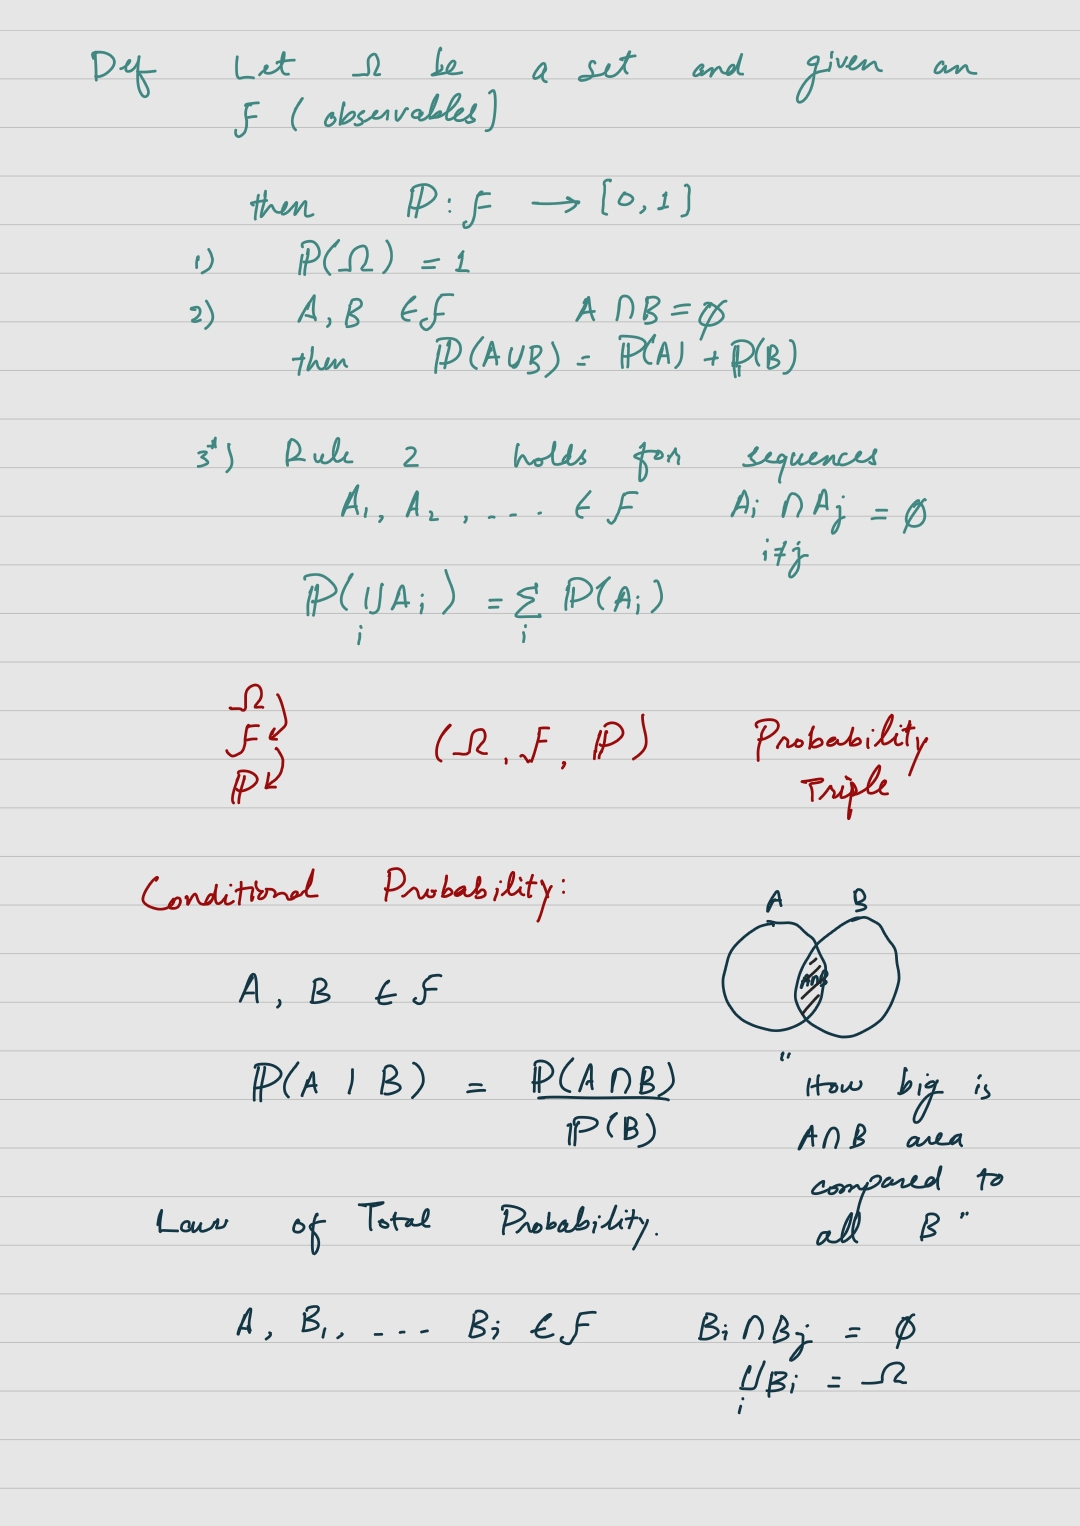 Def Let Ω be a set and given an
F (observables)
then ℙ: F → [0,1]
1) ℙ(Ω) = 1
2) A, B ∈ F A ∩ B = ∅
then ℙ(A∪B) = ℙ(A) + ℙ(B)
3*) Rule 2 holds for sequences
A₁, A₂, .... ∈ F Aᵢ ∩ Aⱼ = ∅
i≠j
ℙ(∪Aᵢ) = Σ ℙ(Aᵢ)
i i
Ω
F (Ω, F, ℙ) Probability
ℙ Triple
Conditional Probability:
A B
A∩B
A, B ∈ F
ℙ(A | B) = ℙ(A∩B)
ℙ(B)
"How big is
A∩B area
compared to
all B"
Law of Total Probability.
A, B₁, ... Bᵢ ∈ F Bᵢ ∩ Bⱼ = ∅
∪Bᵢ = Ω
i